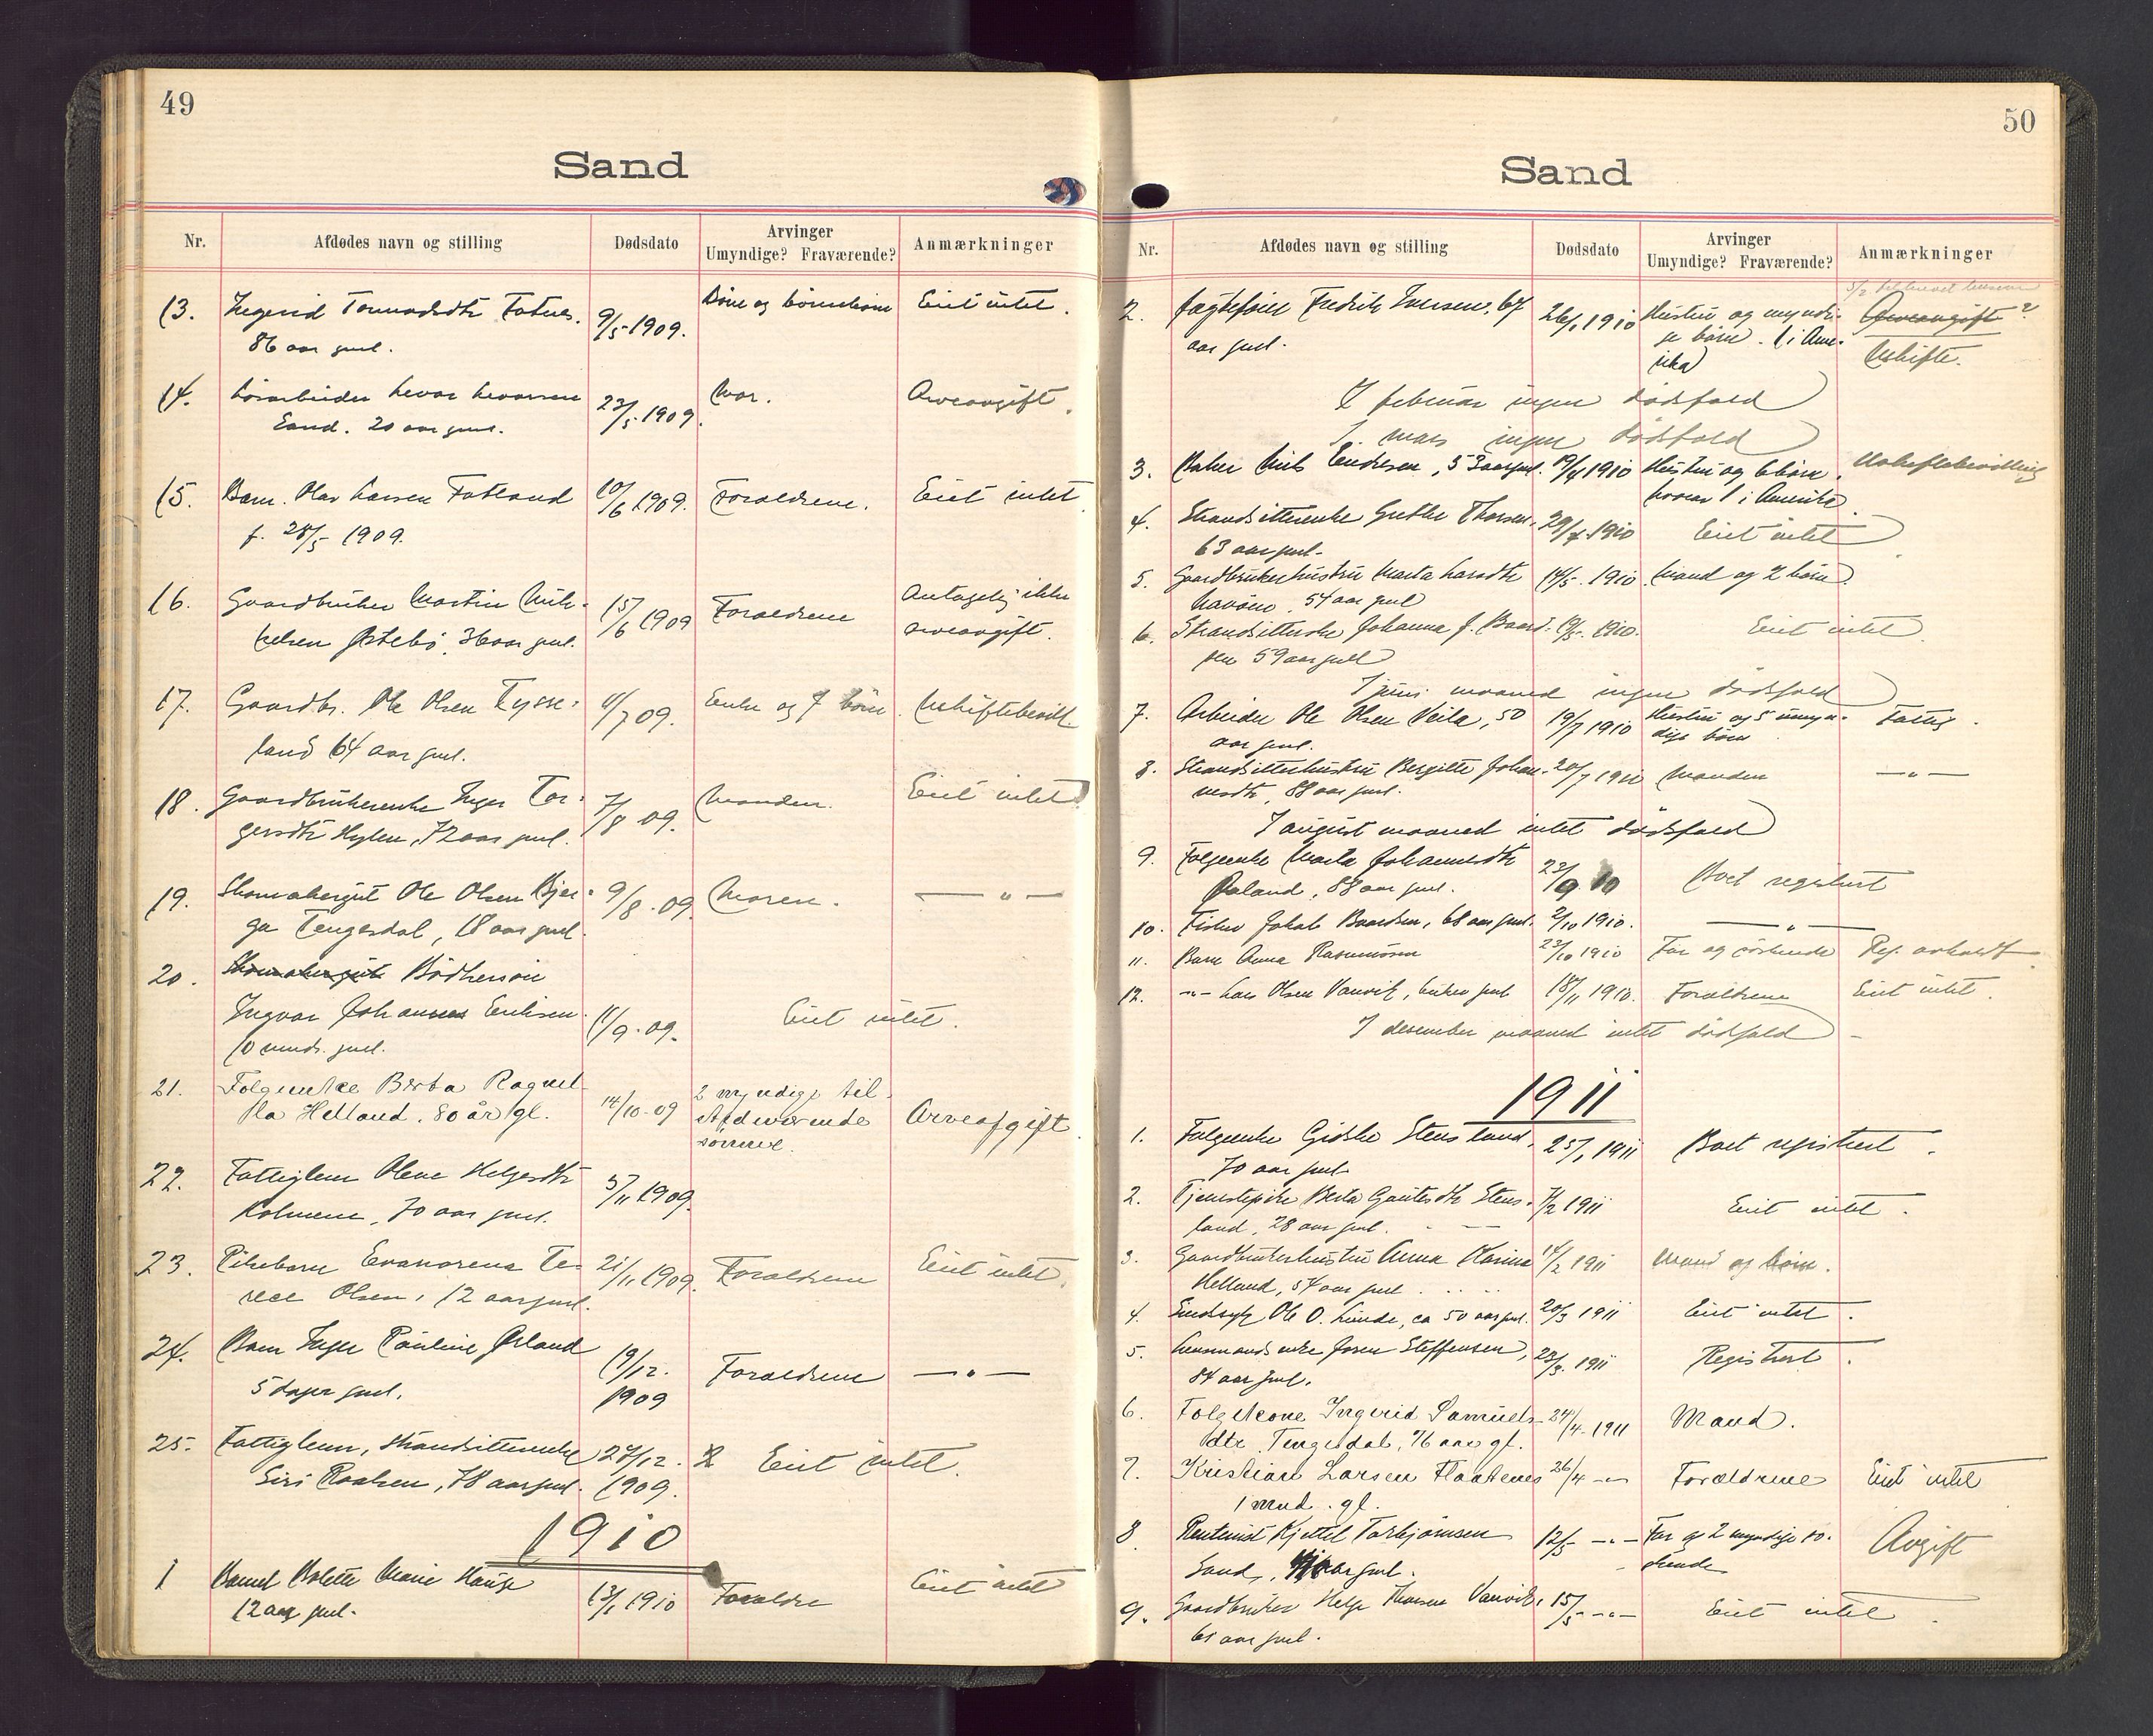 49
Sand
Nr.
Afdødes navn og stilling
Dødsdato
Arvinger
Umyndige? Fraværende?
Anmærkninger
13. Ingerid 9/5 1909. Børn og børnebørn Eiet intet.
86 aar gml.
14. 23/5 1909. Mor. Arveavgift.
Sand. 20 aar gml.
15. Barn. Olav Larsen Fatland 10/6 1909. Forældrene. Eiet intet
f. 28/5 1909.
16. Gaardbruker Martin Mik- 15/6 1909 Forældrene Antagelig ikke
kelsen Østebø, 36 aar gml. arveavgift.
17. Gaardbr. Ole Olsen Tysse- 11/7 09. Enke og 7 børn. Uskiftebevill.
land 64 aar gml.
18. Gaardbrukerenke Inger Tor- 7/8 09. Manden. Eiet intet
gersdtr Hylen, 72 aar gml.
19. Skomakergut Ole Olsen Bjer- 9/8. 09. Moren. — " —
ga Tengesdal, 18 aar gml.
20. Skomakergut Bødkersøn
Ingvar Johannes Eriksen 11/9. 09. Eiet intet.
10 mndr. gml.
21. Folgeenke Berta Ragnil- 14/10-09 2 myndige til
da Helland. 80 år gl. stedværende Arveafgift
sønner.
22. Fattiglem Olene Helgesdtr 5/11 1909.
Kolmene, 70 aar gml.
23. Pikebarn Evanorena Te- 21/11 1909. Forældrene Eiet intet.
rese Olsen, 12 aar gml.
24. Barn Inger Pauline Ørland 19/12. Forældrene — " —
5 dager gml. 1909
25. Fattiglem, Strandsitterenke 27/12. Eiet intet.
Siri Raaken, 78 aar gml. 1909.
1910
1 Barnet Bolette Marie Hauge 13/1 1910 Forældre Eiet intet
12 aar gml.
50
Sand
Nr.
Afdødes navn og stilling
Dødsdato
Arvinger
Umyndige? Fraværende?
Anmærkninger
2. Fredrik Iversen, 67 26/1 1910 Hustru og myndi- Arveavgift ?
aar gml. ge børn. (i Ame- Uskifte.
rika)
I februar ingen dødsfald
I mars ingen dødsfald
3. Baker Nils Endresen, 53 aar gml. 19/4 1910 Hustru og 6 børn, Uskiftebevilling
hvorav 1 i Amerika.
4. Strandsitterenke Grethe Thorsen, 29/4 1910 Eiet intet
63 aar gml.
5. Gaardbrukerhustru Marta Larsdtr 14/5. 1910 Mand og 2 børn
54 aar gml
6. Strandsitterske Johanna J. Baard- 19/5. 1910. Eiet intet
sen 59 aar gml
I juni maaned ingen dødsfald
7. Arbeider Ole Olsen Veila, 50 19/7 1910 Hustru og 5 umyn- Fattig.
aar gml. dige børn
8. Strandsitterhustru Bergitte Johan- 20/7 1910 Manden — " —
nesdtr, 88 aar gml.
I august maaned intet dødsfald
9. Folgeenke Marta Johannesdtr 23/9 10 Boet registrert
88 aar gml.
10. Fisker Jakob Baardsen, 68 aar gml. 2/10 1910. — " —
11. Barn Anna Rasmussen 23/10 1910 Far og søskende Reg. avholdt
12. -"- Lars Olsen Vanvik, gml 18/11 1910. Forældrene Eiet intet.
I desember maaned intet dødsfald
1911
1. Folgeenke Gidske Stensland, 25/1 1911 Boet registrert.
70 aar gml
2. Tjenestepike Berta Gautesdtr Stens- 7/2 1911 Eiet intet.
land, 28 aar gml.
3. Gaardbrukerhustru Anna Karina 14/2 1911 Mand og børn.
Helland, 54 aar gml
4. Sindssyk Ole O. Lunde, ca 50 aar gml. 20/3 1911 Eiet intet.
5. Lensmandsenke Steffensen, 28/3. 1911 Registrert.
84 aar gml.
6. Folgekone Ingerid Samuels- 24/4-1911 Mand.
dtr. Tengesdal, 76 aar gl.
7. Kristian Larsen Flaatenes 26/4 -"- Forældrene Eiet intet
1 mnd. gl.
8. Rentenist Kjettel Torbjørnsen 12/5 -"- Far og 2 myndige sø- Avgift
Sand, aar gml. skende
9. Gaardbruker Helge Vanvik, 15/5 -"- Eiet intet
61 aar gml.